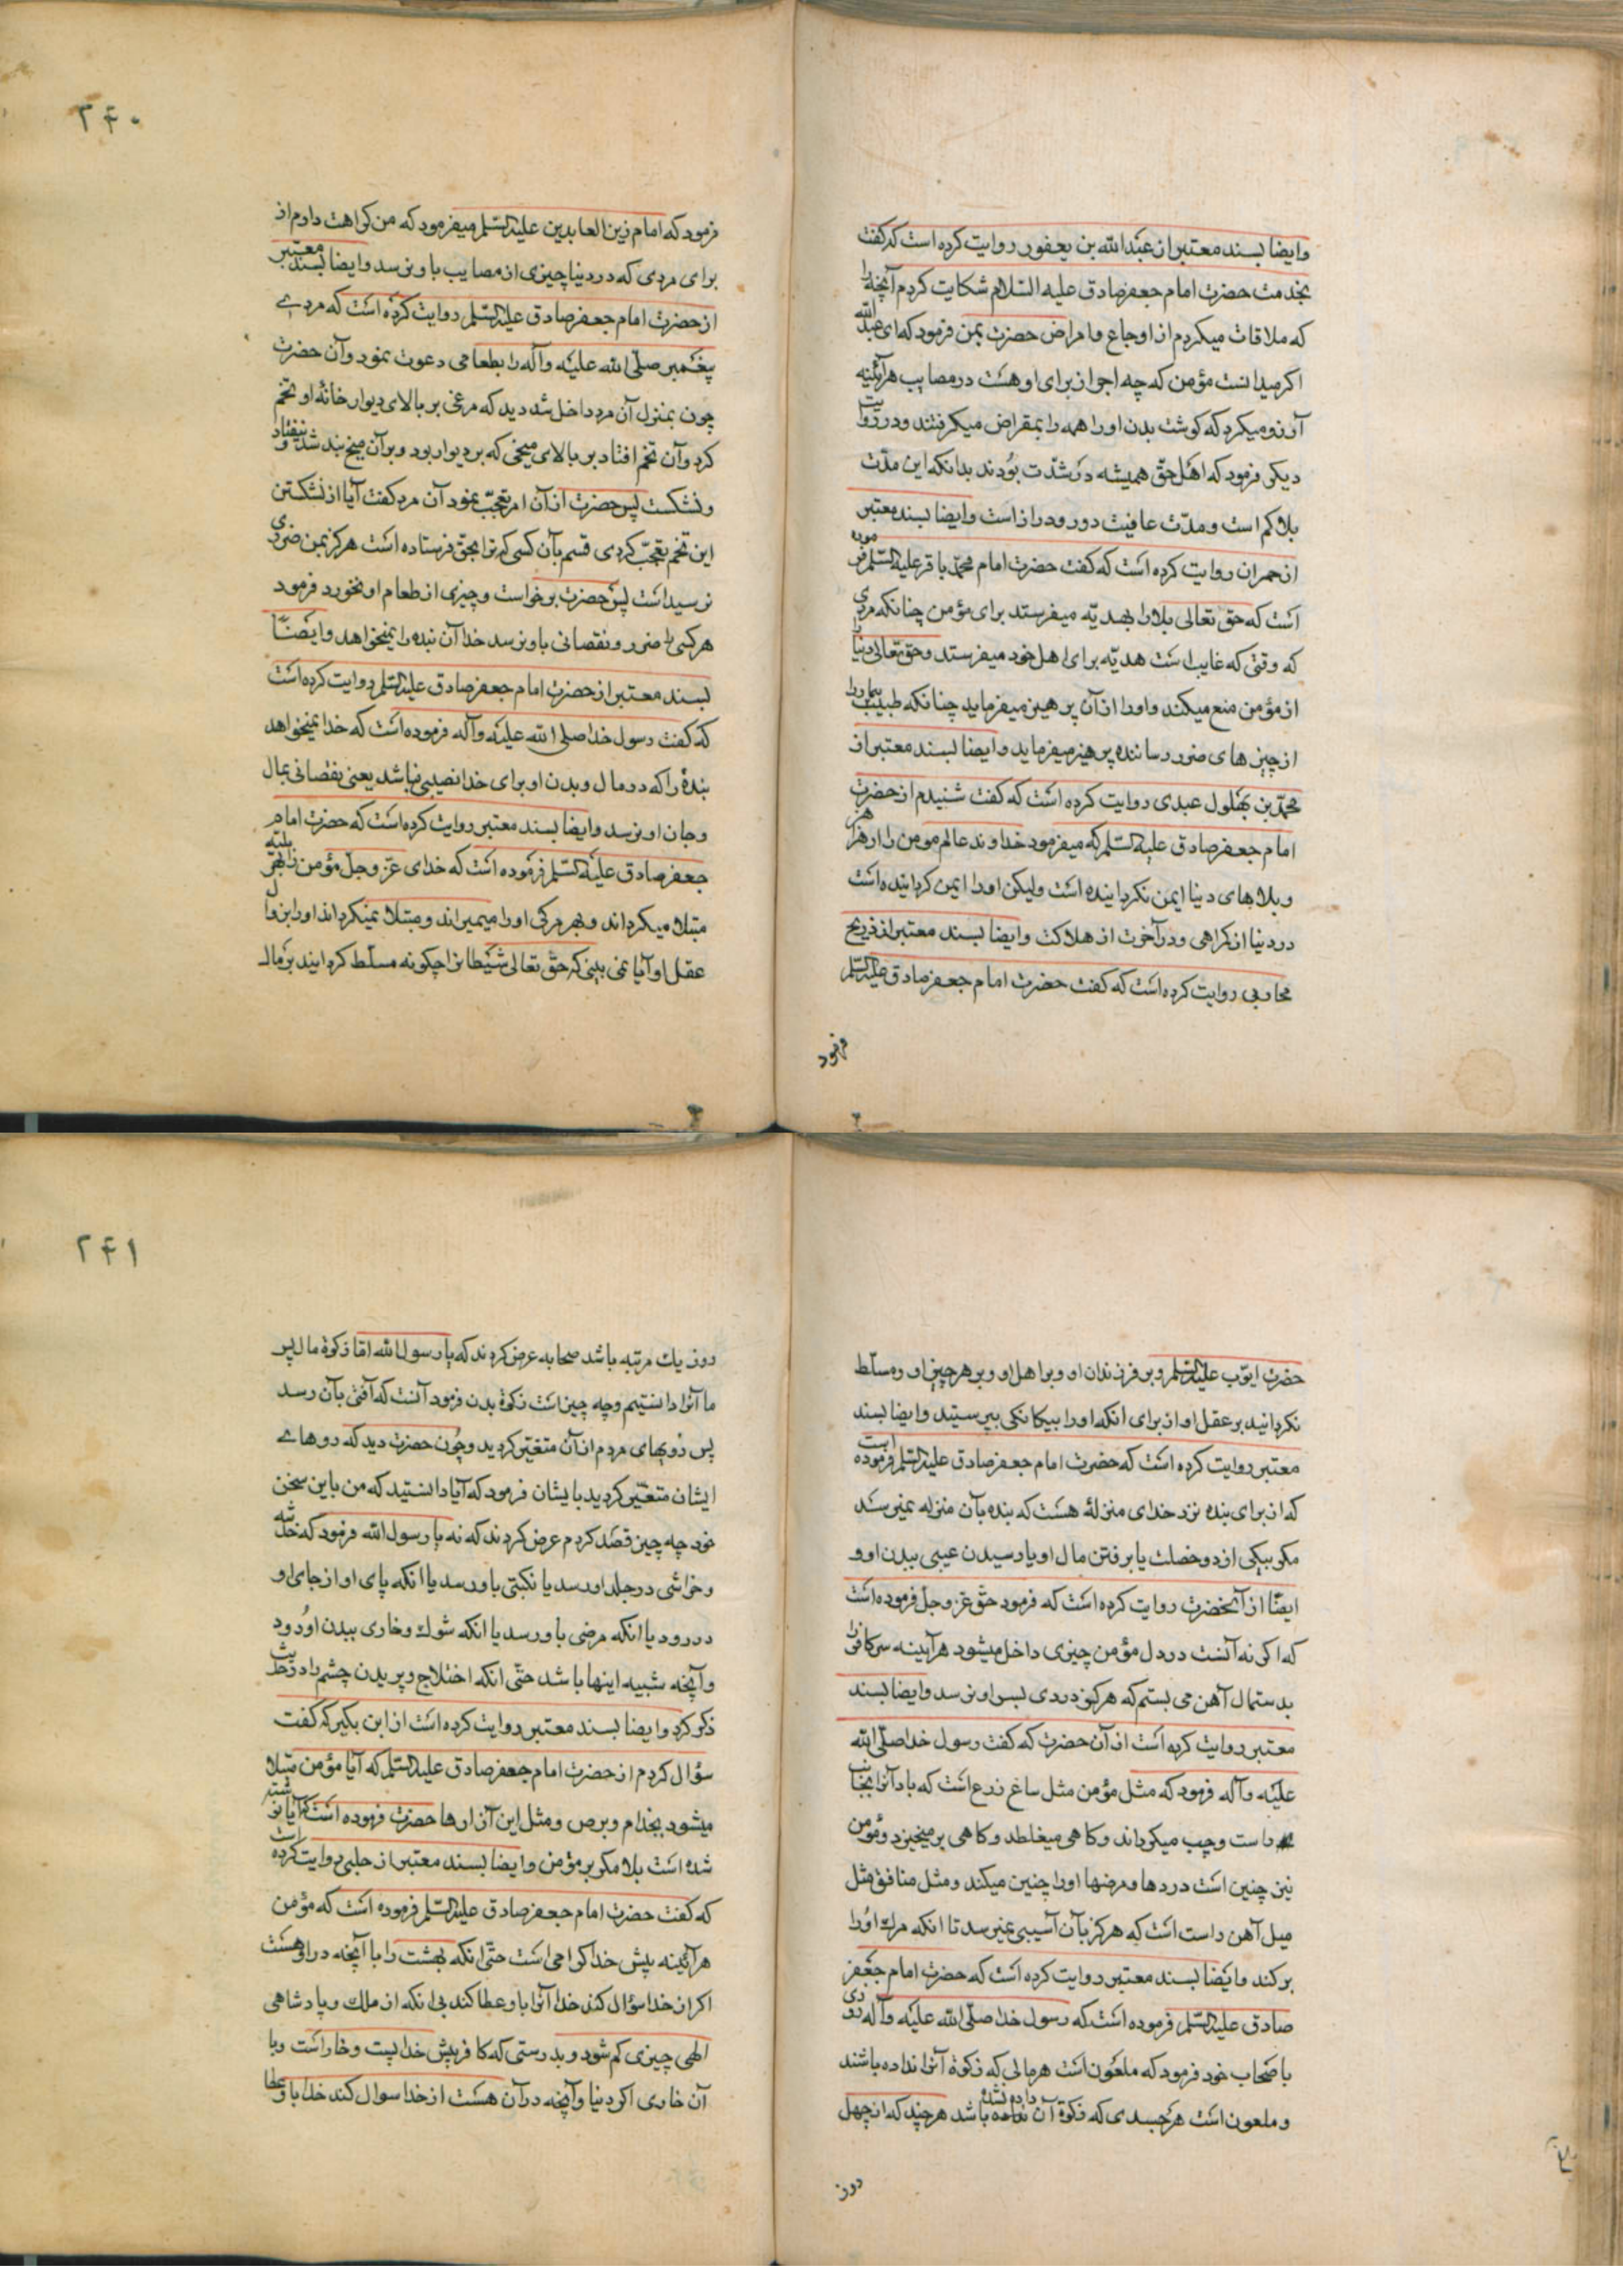 وایضا بسند معتبر از عبدالله بن یعفور روایت کرده است که گفت
بخدمت حضرت امام جعفر صادق علیه السلام شکایت کردم آنچه را
که ملاقات میکردم از اوجاع و امراض حضرت بمن فرمود که ای عبدالله
اکر میدانست مؤمن که چه اجر از برای او هست در مصایب هرآئینه
آرزو میکرد که کوشت بدن او را همه را بمقراض میکرفتند و در روایت
دیکر فرمود که اهل حق همیشه در شدّت بودند بدانکه این مدّت
بلا کم است و مدّت عافیت دور و دراز است وایضا بسند معتبر
از حمران روایت کرده است که گفت حضرت امام محمّد باقر علیه السلم فرموده
است که حق تعالی بلا را بهدیّه میفرستد برای مؤمن چنانکه مردی
که وقتی که غایب است هدیّه برای اهل خود میفرستد و حق تعالی دنیا را
از مؤمن منع میکند و او را از آن پرهیز میفرماید چنانکه طبیب بیمار را
از چیزهای ضرر رساننده پرهیز میفرماید وایضا بسند معتبر از
محمّد بن بهلول عبدی روایت کرده است که گفت شنیدم از حضرت
امام جعفر صادق علیه السلم که میفرمود خداوند عالم مومن را از هزاهز
و بلاهای دنیا ایمن نکردانیده است ولیکن او را ایمن کردانیده است
در دنیا از کراهی و در آخرت از هلاکت وایضا بسند معتبر از ذریح
محاربی روایت کرده است که گفت حضرت امام جعفر صادق علیه السلم
فرمود
۲۴۰
فرمود که امام زین العابدین علیه السلم میفرمود که من کراهت دارم از
برای مردی که در دنیا چیزی از مصایب باو نرسد وایضا بسند معتبر
از حضرت امام جعفر صادق علیه السلم روایت کرده است که مردے
پیغمبر صلّی الله علیه وآله را بطعامی دعوت نمود و آن حضرت
چون بمنزل آن مرد داخل شد دید که مرغی بر بالای دیوار خانهٔ او تخم
کرد و آن تخم افتاد بر بالای میخی که بر دیوار بود و بر آن میخ بند شد و نیفتاد
و نشکست پس حضرت از آن امر تعجّب نمود آن مرد گفت آیا از نشکستن
این تخم تعجّب کردی قسم بآن کسی که ترا بحق فرستاده است هرکز بمن ضرری
نرسیداست پس حضرت برخواست و چیزی از طعام او نخورد فرمود
هر کسی را ضرر و نقصانی باو نرسد خدا آن بنده را نمیخواهد وایضاً
بسند معتبر از حضرت امام جعفر صادق علیه السلم روایت کرده است
که گفت رسول خدا صلی الله علیه وآله فرموده است که خدا نمیخواهد
بندهٔ را که در مال و بدن او برای خدا نصیبی نباشد یعنی نقصانی بمال
و جان او نرسد وایضا بسند معتبر روایت کرده است که حضرت امام
جعفر صادق علیه السلم فرموده است که خدای عزّ وجلّ مؤمن را بهر بلیّه
مبتلا میکرداند و بهر مرکی او را میمیراند و مبتلا نمیکرداند او را بزوال
عقل او آیا نمی بینی که حقّ تعالی شیطانرا چکونه مسلّط کردانید بر مال
حضرت ایوّب علیه السلم و بر فرزندان او و بر اهل او و بر هر چیز او و مسلّط
نکردانید بر عقل او از برای انکه او را بیکانکی بپرستید وایضا بسند
معتبر روایت کرده است که حضرت امام جعفر صادق علیه السلم فرموده است
که از برای بنده نزد خدای منزلهٔ هست که بنده بآن منزله نمیرسد
مکر بیکی از دو خصلت یا برفتن مال او یا رسیدن عیبی ببدن او و
ایضًا از آنحضرت روایت کرده است که فرمود حقّ عزّ وجلّ فرموده است
که اکر نه آنست در دل مؤمن چیزی داخل میشود هرآینه سر کافر را
بدستمال آهن می بستم که هرکز دردی بسر او نرسد وایضا بسند
معتبر روایت کرده است از آن حضرت که گفت رسول خدا صلّی الله
علیه وآله فرمود که مثل مؤمن مثل ساغ زرع است که باد آنرا بجانب
راست و چپ میکرداند و کاهی میغلطد و کاهی برمیخیزد و مؤمن
نیز چنین است دردها و مرضها او را چنین میکند و مثل منافق مثل
میل آهن راست است که هرکز بآن آسیبی نمیرسد تا انکه مرك او را
برکند وایضا بسند معتبر روایت کرده است که حضرت امام جعفر
صادق علیه السلم فرموده است که رسول خدا صلّی الله علیه وآله روزی
باصحاب خود فرمود که ملعون است هر مالی که زکوة آنرا نداده باشند
و ملعون است هر جسدی که زکوة آن داده نشده باشد هر چند که از چهل
روز
۲۴۱
روز یك مرتبه باشد صحابه عرض کردند که یا رسول الله امّا زکوة مال پس
ما آنرا دانستیم و چه چیز است زکوة بدن فرمود آنست که آفتی بآن رسد
پس رویهای مردم از آن متغیّر کردید و چون حضرت دید که روهاے
ایشان متغیّر کردید بایشان فرمود که آیا دانستید که من باین سخن
خود چه چیز قصد کردم عرض کردند که نه یا رسول الله فرمود که خدشه
و خراشی در جلد او رسد یا نکبتی باو رسد یا انکه پای او از جای او
در رود یا انکه مرضی باو رسد یا انکه شوك و خاری ببدن او رود
و آنچه شبیه اینها باشد حتّی انکه اختلاج و پریدن چشم را در حدیث
ذکر کرد وایضا بسند معتبر روایت کرده است از ابن بکیر که گفت
سؤال کردم از حضرت امام جعفر صادق علیه السلم که آیا مؤمن مبتلا
میشود بجذام و برص و مثل این آزارها حضرت فرموده است که آیا نوشته
شده است بلا مکر بر مؤمن وایضا بسند معتبر از حلبی روایت کرده است
که گفت حضرت امام جعفر صادق علیه السلم فرموده است که مؤمن
هرآئینه پیش خدا کرامی است حتّی انکه بهشت را با آنچه در او هست
اکر از خدا سؤال کند خدا آنرا باو عطا کند بی انکه از ملك و پادشاهی
الهی چیزی کم شود و بدرستی که کافر پیش خدا پست و خار است و با
آن خاری اکر دنیا و آنچه در آن هست از خدا سوال کند خدا باو عطا